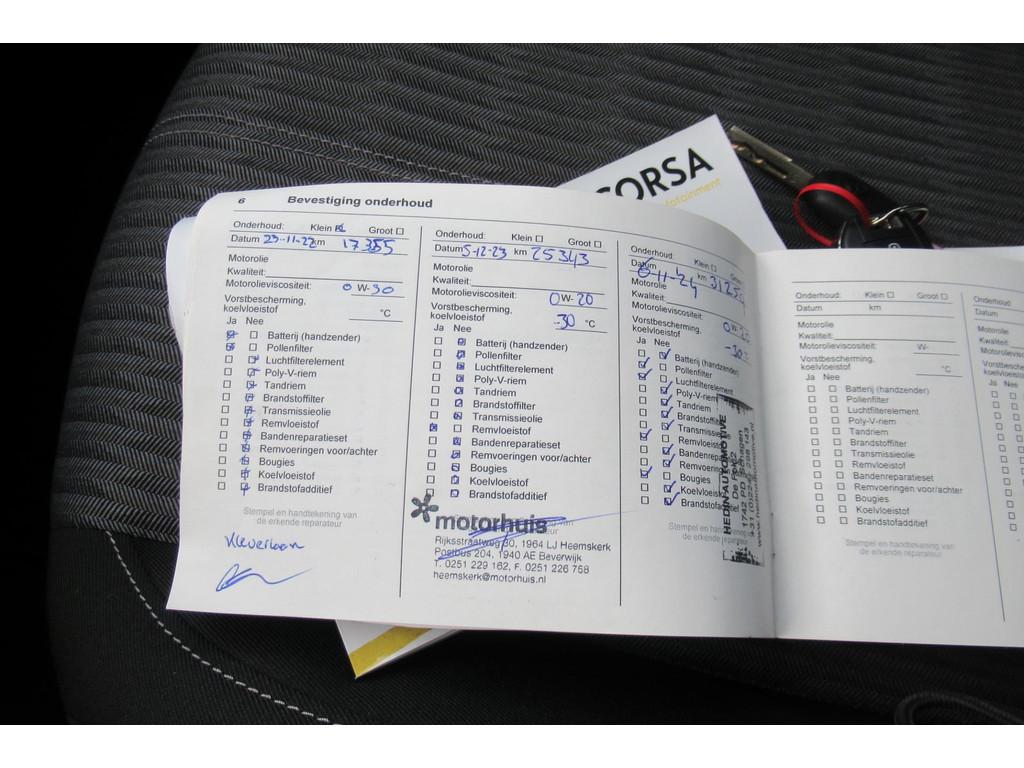 CORSA
Infotainment
6 Bevestiging onderhoud
Onderhoud: Klein Groot
Datum 23-11-22 km 17355
Motorolie
Kwaliteit:
Motorolieviscositeit: 0 W-30
Vorstbescherming,
koelvloeistof °C
Ja Nee
Batterij (handzender)
Pollenfilter
Luchtfilterelement
Poly-V-riem
Tandriem
Brandstoffilter
Transmissieolie
Remvloeistof
Bandenreparatieset
Remvoeringen voor/achter
Bougies
Koelvloeistof
Brandstofadditief
Stempel en handtekening van
de erkende reparateur
Kleverlaan
Onderhoud: Klein Groot
Datum 5-12-23 km 25343
Motorolie
Kwaliteit:
Motorolieviscositeit:
0W-20
Vorstbescherming,
koelvloeistof -30 °C
Ja Nee
Batterij (handzender)
Pollenfilter
Luchtfilterelement
Poly-V-riem
Tandriem
Brandstoffilter
Transmissieolie
Remvloeistof
Bandenreparatieset
Remvoeringen voor/achter
Bougies
Koelvloeistof
Brandstofadditief
motorhuis
Rijksstraatweg 30, 1964 LJ Heemskerk
Postbus 204, 1940 AE Beverwijk
T. 0251 229 162, F. 0251 226 768
heemskerk@motorhuis.nl
Onderhoud: Klein Groot
Datum km
Motorolie
Kwaliteit:
Motorolieviscositeit:
Vorstbescherming,
koelvloeistof -30
Ja Nee
Batterij (handzender)
Pollenfilter
Luchtfilterelement
Poly-V-riem
Tandriem
Brandstoffilter
Bougies
Stempel en
de erkende
HEDIN AUTOMOTIVE
1742 PD Schagen
Onderhoud: Klein Groot
Datum km
Motorolie
Kwaliteit:
Motorolieviscositeit: W-
Vorstbescherming,
koelvloeistof °C
Ja Nee
Batterij (handzender)
Pollenfilter
Luchtfilterelement
Poly-V-riem
Tandriem
Brandstoffilter
Transmissieolie
Remvloeistof
Bandenreparatieset
Remvoeringen voor/achter
Bougies
Koelvloeistof
Brandstofadditief
Stempel en handtekening van
de erkende reparateur
Onderhoud
Datum
Motorolie
Kwaliteit:
Ja Nee